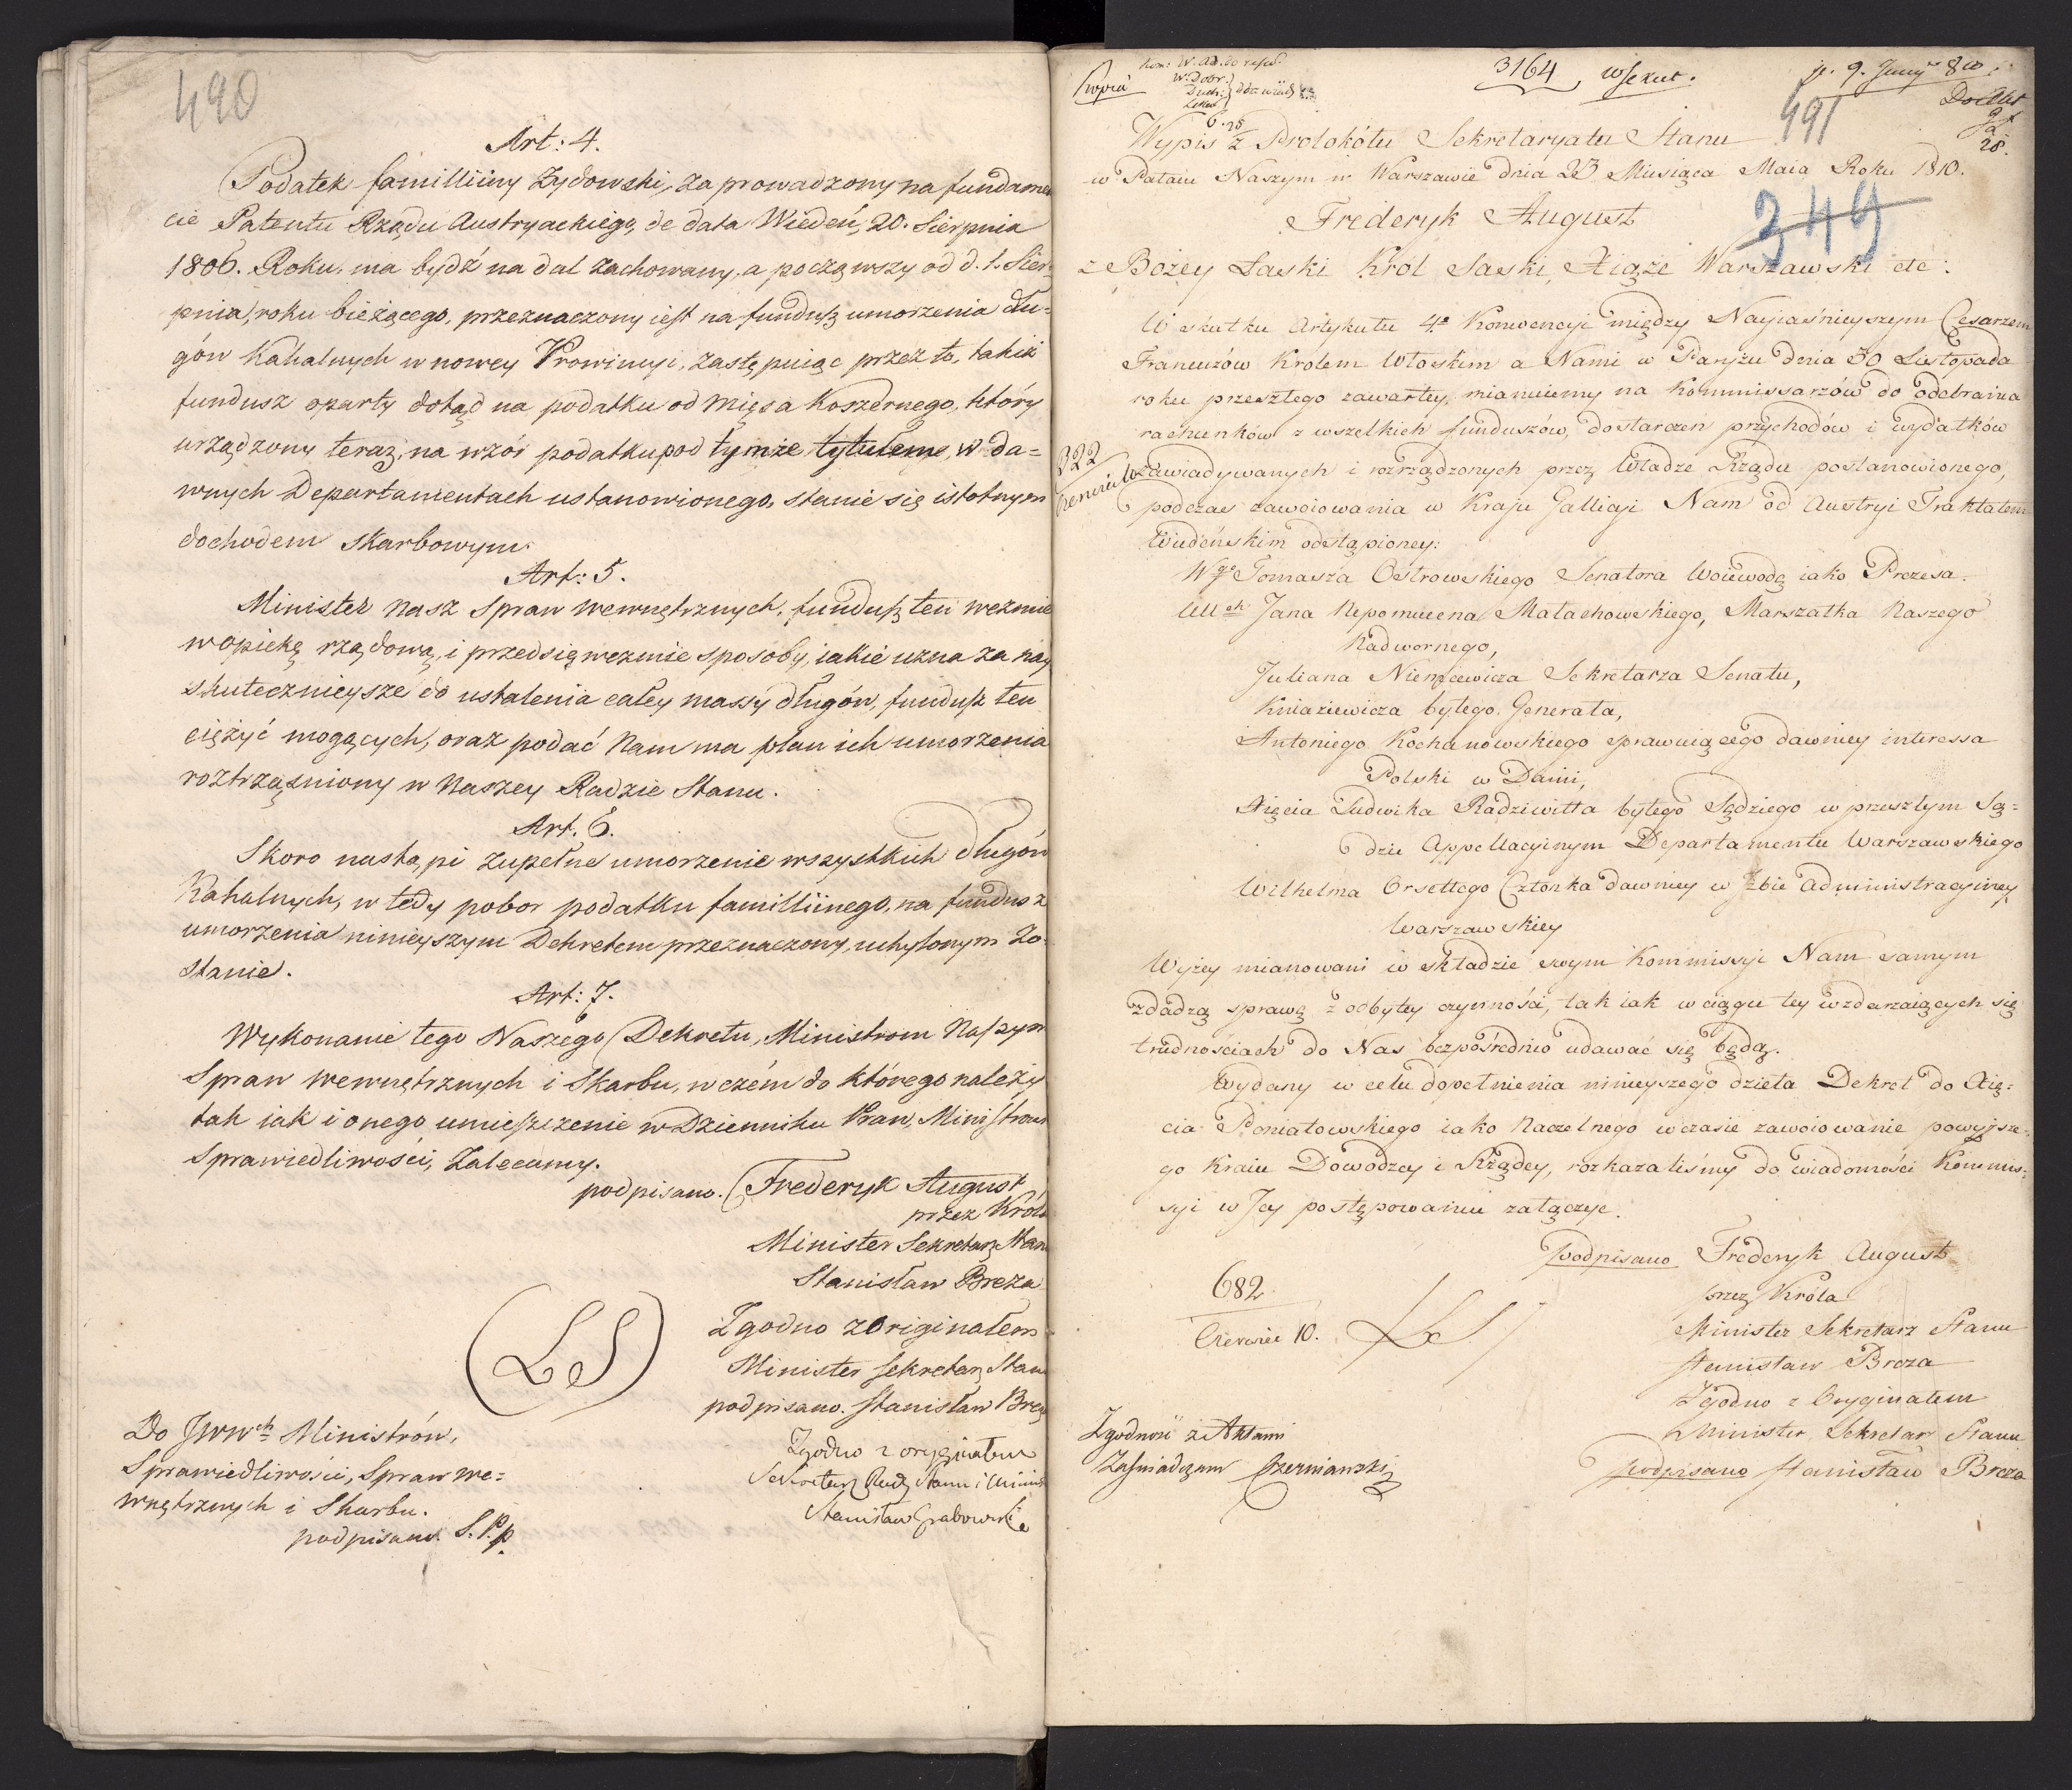 490
Art: 4.
Podatek familliiny Żydowski, zaprowadzony na fundamen
cie Patentu Rządu Austryackiego, de data Wiedeń, 20. Sierpnia
1806. Roku, ma bydź na dal zachowany, a począwszy od d. 1. Sier-
pnia, roku bieżącego, przeznaczony iest na fundusz umorzenia dłu=
gów Kahalnych w nowey Prowincyi, zastępuiąc przez to, takiż
fundusz oparty dotąd na podatku od mięsa koszernego, który
urządzony teraz, na wzór podatku pod tymże tytułem, w da=
wnych Departamentach ustanowionego, stanie się istotnym
dochodem skarbowym.
Art: 5.
Minister nasz Spraw wewnętrznych, fundusz ten weźmie
w opiekę rządową, i przedsięweźmie sposoby, iakie uzna za nay
skutecznieysze do ustalenia całey massy długów, fundusz ten
ciężyć mogących, oraz podać Nam ma plan ich umorzenia
roztrząśniony w Naszey Radzie Stanu.
Art. 6.
Skoro nastąpi zupełne umorzenie wszystkich długów
Kahalnych, w tedy pobor podatku familliinego, na fundusz
umorzenia ninieyszym Dekretem przeznaczony, uchylonym zo-
stanie.
Art: 7.
Wykonanie tego Naszego Dekretu, Ministrom Naszym
Spraw wewnętrznych i Skarbu, w czém do którego należy
tak iak i onego umieszczenie w Dzienniku Praw, Ministrowi
Sprawiedliwości, Zalecamy.
podpisano. Frederyk August,
przez Króla
Minister Sekretarz Stanu
Stanisław Breza
(LS)
Zgodno z Originałem
Minister Sekretarz Stanu
podpisano. Stanisław Breza
Zgodno z oryginałem
Sekretarz Rady Stanu i Minis
Stanisław Grabowski
Do JWWch Ministrów,
Sprawiedliwości, Spraw we=
wnętrznych i Skarbu.
podpisano. S. P. p.
3164
491
Wypis z Protokółu Sekretaryatu Stanu
w Pałacu Naszym w Warszawie dnia 23 Miesiąca Maia Roku 1810.
349
Frederyk August
z Bożey Łaski Król Saski, Xiąże Warszawski etc:
W skutku Artykułu 4o Konwencyi między Nayiaśnieyszym Cesarzem
Francuzów Królem Włoskim a Nami w Paryżu dnia 30 Listopada
roku przeszłego zawartey, mianuiemy na Kommissarzów do odebrania
rachunków z wszelkich funduszów, dostarczeń przychodów i wydatków
322
zawiadywanych i rozrządzonych przez Władze Rządu postanowionego,
podczas zawoiowania w Kraju Gallicyi Nam od Austryi Traktatem
Wiedeńskim odstąpioney:
Wgo Tomasza Ostrowskiego Senatora Woiewodę iako Prezesa.
Jana Nepomucena Małachowskiego, Marszałka Naszego
Nadwornego,
Juliana Niemcewicza Sekretarza Senatu,
Kniaziewicza byłego Generała,
Antoniego Kochanowskiego sprawuiącego dawniey interessa
Polski w Danii,
Xięcia Ludwika Radziwiłła byłego Sędziego w przeszłym Są=
dzie Appellacyinym Departamentu Warszawskiego
Wilhelma Orsettego Członka dawniey w Izbie Administracyiney
Warszawskiey
Wyżey mianowani w składzie swym Kommissyi Nam samym
zdadzą sprawę z odbytey czynności, tak iak w ciągu tey w zdarzaiących się
trudnościach do Nas bezpośrednio udawać się będą.
Wydany w celu dopełnienia ninieyszego dzieła Dekret do Xię=
cia Poniatowskiego iako Naczelnego w czasie zawoiowania powyższe-
go Kraiu Dowódzcy i Rządcy, rozkazaliśmy do wiadomości Kommis-
syi w Jey postępowaniu załączyć.
Podpisano Frederyk August
przez Króla
Minister Sekretarz Stanu
Stanisław Breza
682
Czerwiec 10.
LS
Zgodno z Oryginałem
Minister Sekretarz Stanu
podpisano Stanisław Breza
Zgodność z Aktami
Zaświadczam Czerniawski